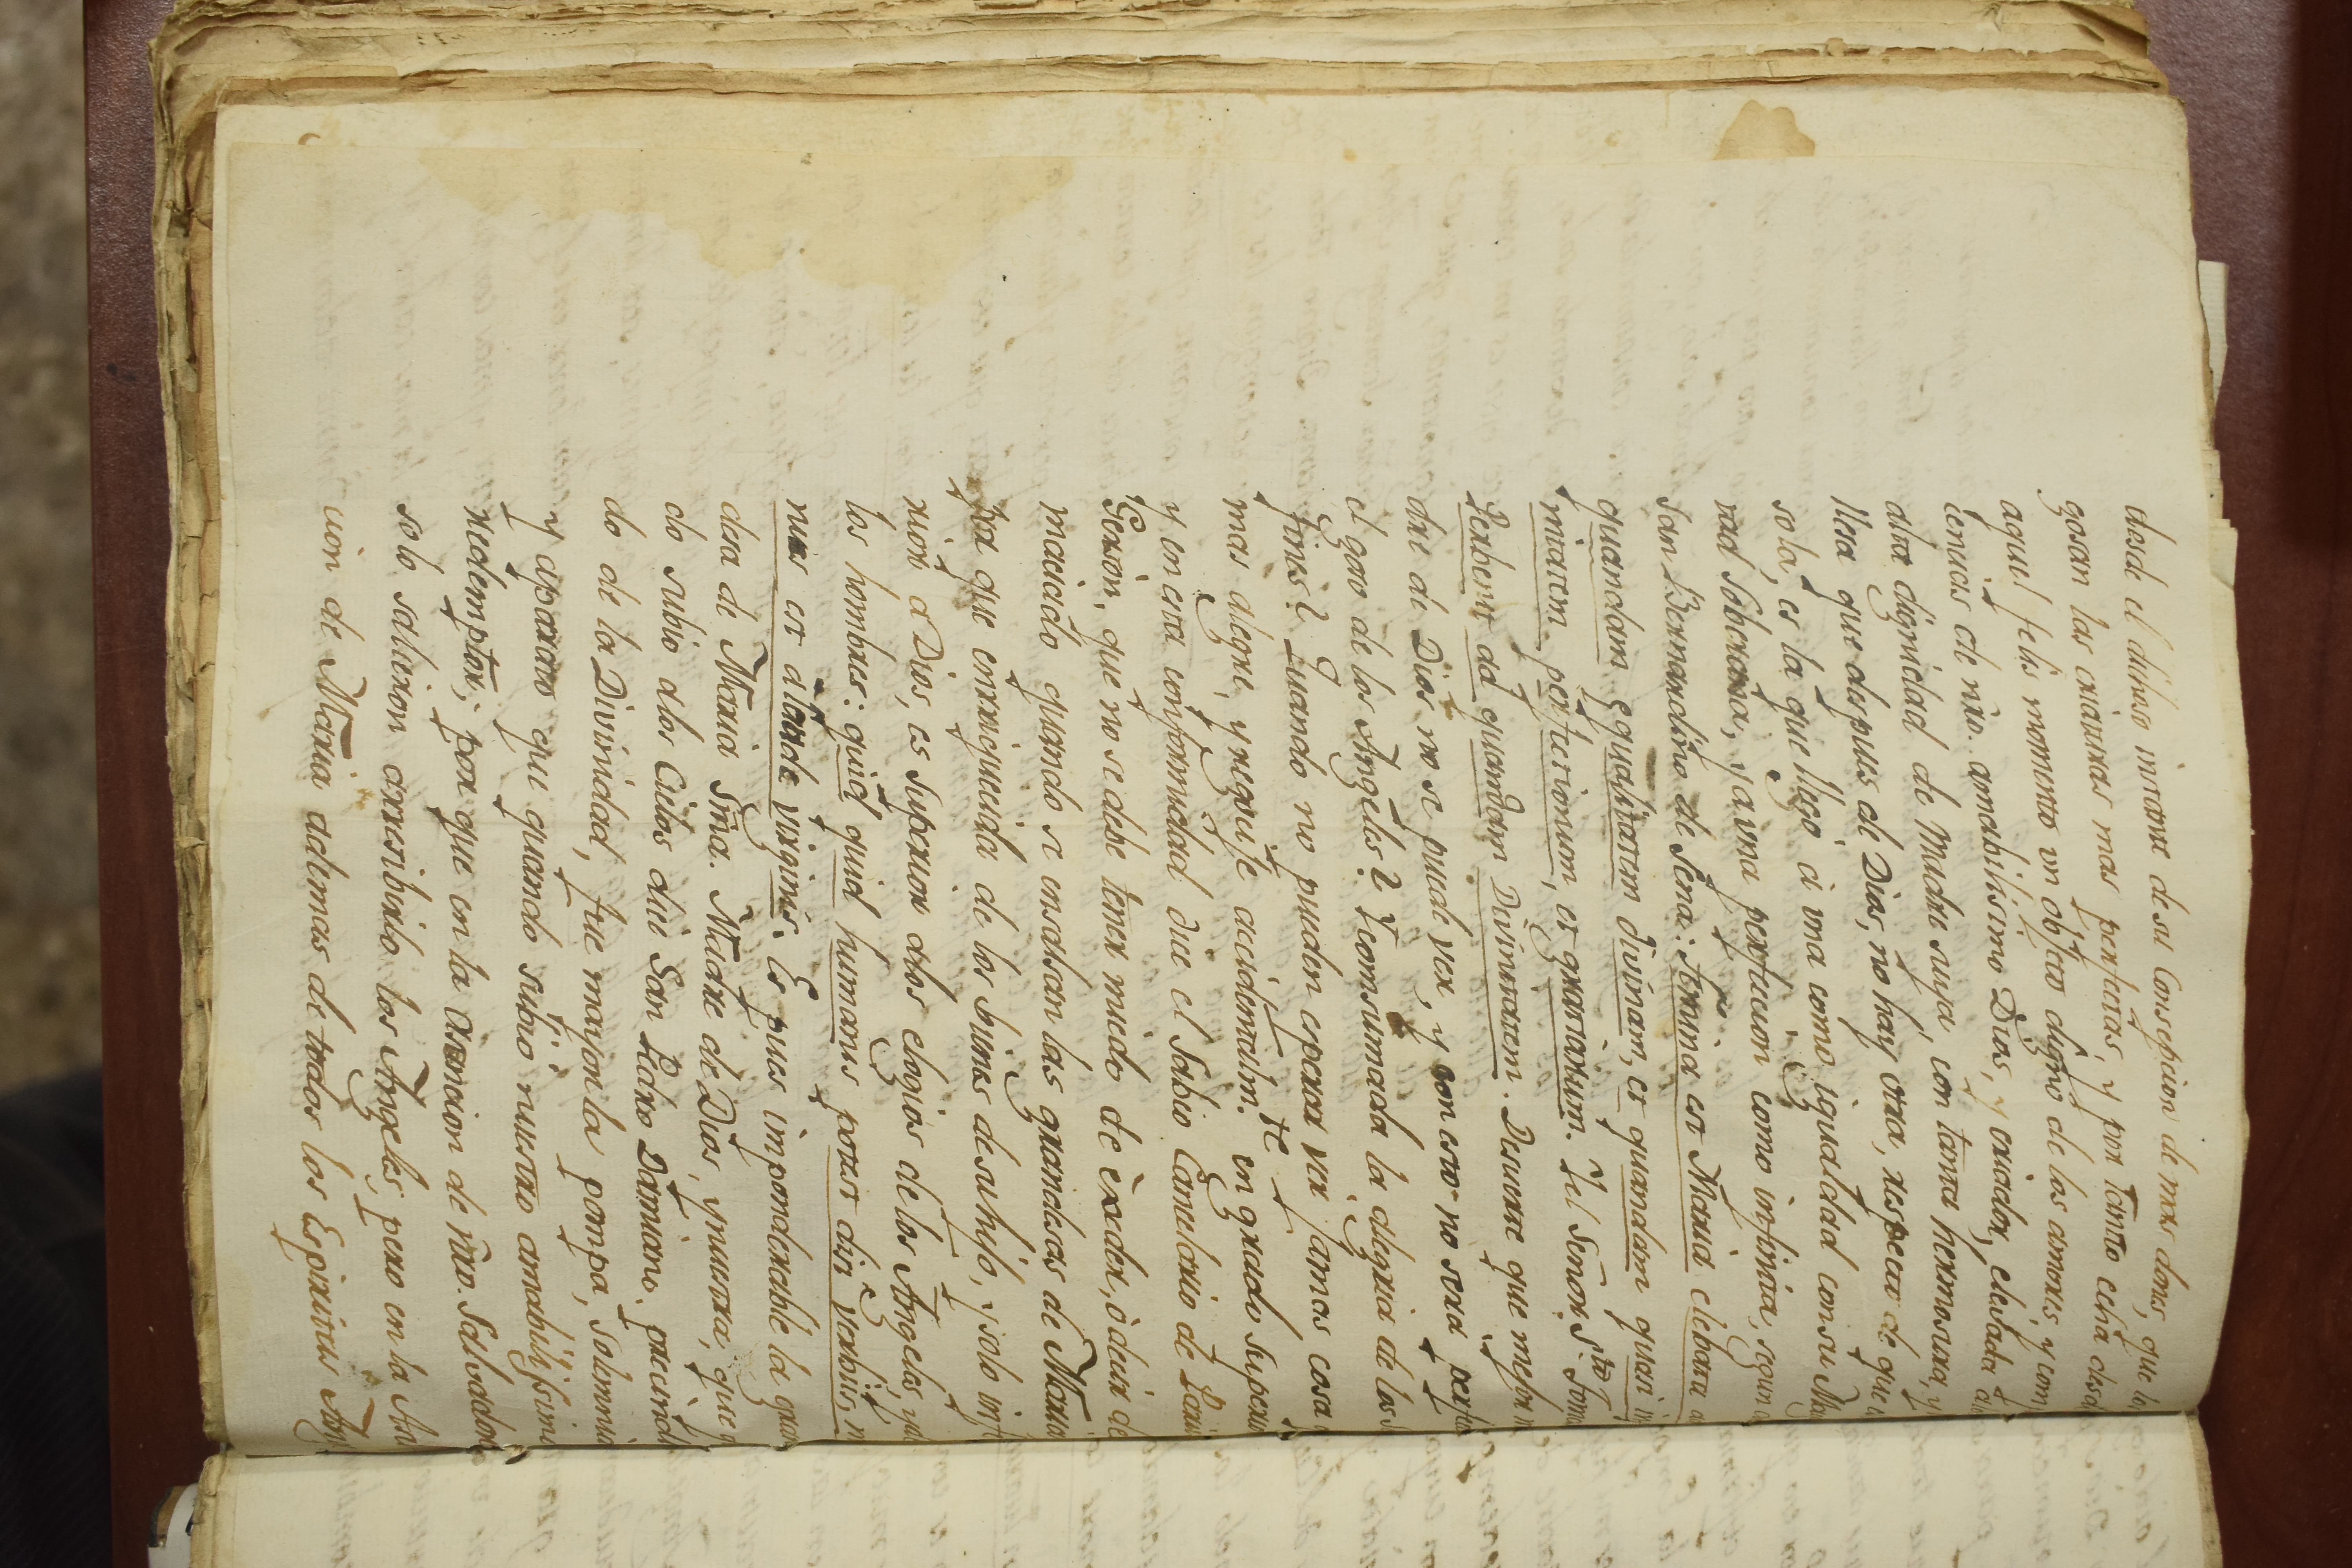 desde el dichoso instante de su Consepcion de mas dones, que la
gosan las criaturas mas perfectas, y por tanto echa desde
aquel felis momento un objeto digno de los amores, y com
cencias de nro. amabilisimo Dios, y criador, elevada a
alta dignidad de Madre suya, con tanta hermosura, y
llesa que despues de Dios, no hay otra, respecto de que
sola, es la que llegó á una como igualdad con su Ma
tad Soberana, y a una perfeccion como infinita, segun
San Bernardino de Sena: femina est Maria elebata a
quandam equalitatem divinam, et quandam quasi in
mitatem perfectionum, et gratiarum. Y el Señor Sto.
Serbent ad quandam Divinitatem. De suerte que mejor
dre de Dios no se puede ver, y con esto no será perfec
el goso de los Angeles? Y consumada la alegria de los
fines? Quando no pueden esperar ver jamas cosa
mas alegre, y regosije accidentalmte. en grado superio
y en esta conformidad dice el Sabio Cancelario de Paris
Gerson, que no se debe tener miedo de exceder, ò decir de
maciado quando se ensalsan las grandesas de Maria
Por que enrriquecida de los bienes de su hijo, y solo inf
rior a Dios, es superior a los elogios de los Angeles y a
los hombres: quid quid humanis potest dici verbis, m
nus est a laude virginis. Es pues imponderable la gran
desa de Maria Sma. Madre de Dios, y nuestra, que
do subio a los Cielos dice San Pedro Damiano. prescindi
do de la Divinidad, fue mayor la pompa, solemni
y aparato que quando subio nuestro amabilissimo
Redemptor; por que en la Asencion de nro. Salvador
solo salieron a rrecibirlo los Angeles, pero en la As
cion de Maria ademas de todos los Espiritus Ang